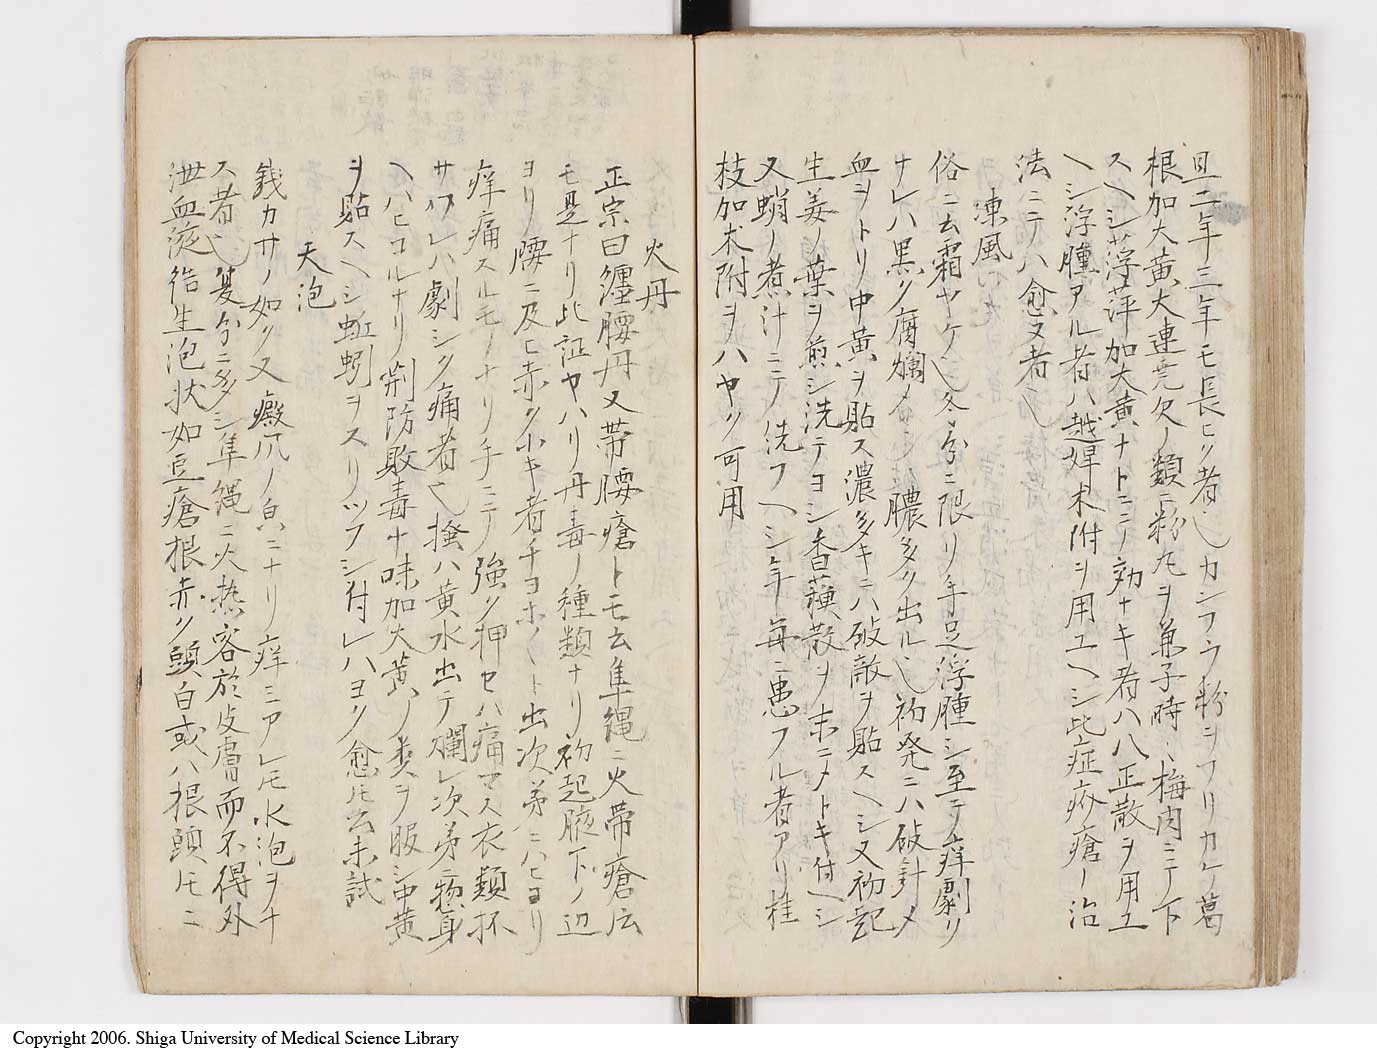 旦二年三年モ長ヒク者〵カンフラ粉ヲフリカケ葛
根加大黄大連尭欠ノ類ニ粉丸ヲ兼子時〻梅肉ニテ下
スヘシ浮萍加大黄ナトニテノ効ナキ者ハ八正散ヲ用ユ
ヘシ浮腫アル者ハ越婢朮附ヲ用ユヘシ此症疥瘡ノ治
法ニテハ愈又者〵
凍風
俗ニ云霜ヤケ〵冬分ニ限リ手足浮腫シ至テ痒劇ク
サレハ黒ク腐爛メ 膿多ク出ル〵初発ニハ砭針メ
血ヲトリ中黄ヲ貼ス濃多キニハ砭敵ヲ貼スヘシ又初起
生姜ノ葉ヲ煎シ洗テヨシ香薷散ヲ末ニメトキ付ヘシ
又蛸ノ煮汁ニテ洗フヘシ年毎ニ患フル者アリ桂
枝加朮附ヲハヤク可用
火丹
正宗曰纏腰丹又帯腰瘡トモ云隼縄ニ火帯瘡広
モ是ナリ此証ヤハリ丹毒ノ種類ナリ初起腋下ノ辺
ヨリ腰ニ及ヒ赤ク小キ者チヨホ〱ト出次第ニハヒヨリ
痒痛スルモノナリ手ニテ強ク押セハ痛マス衣類杯
サワレハ劇シク痛者〵掻ハ黄水出テ爛レ次第惣身
ヘハヒコルナリ荊防敗毒十味加大黄ノ類ヲ服シ中黄
ヲ貼スヘシ蚯蚓ヲスリツフシ付レハヨク愈ルト云未試
天泡
銭カサノ如ク又癜爪ノ色ニナリ痒ミアレトモ水泡ヲナ
ス者〵夏分ニ多シ隼縄ニ火热客於皮膚而不得外
泄血液結生泡状如豆瘡根赤ク頭白或ハ根頭トモニ
Copyright 2006. Shiga University of Medical Science Library